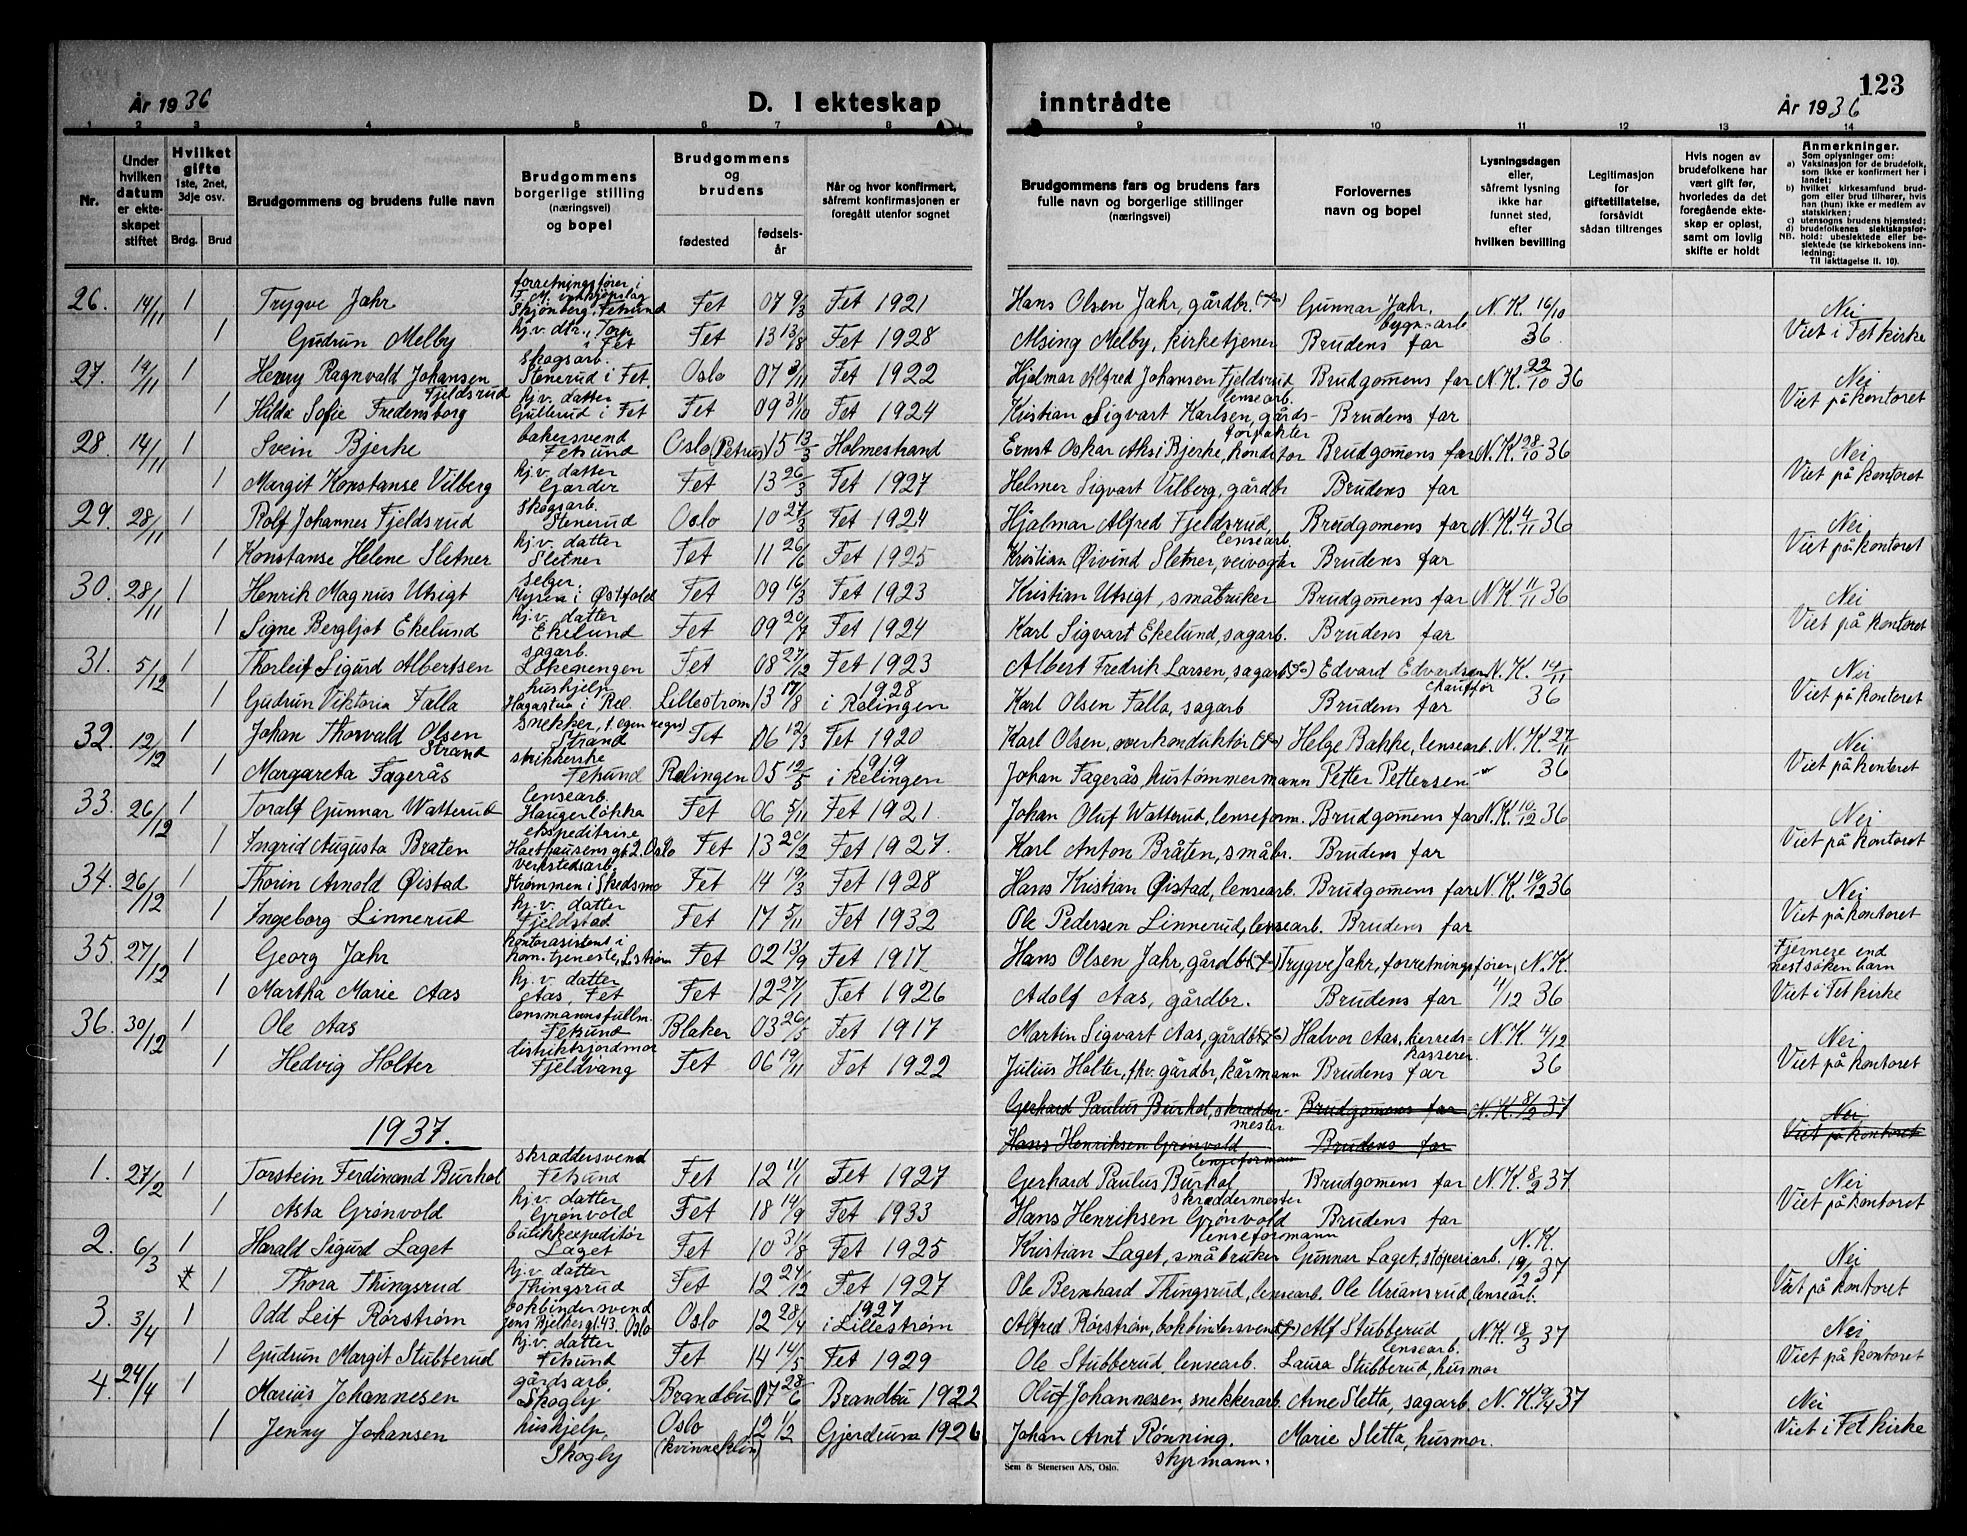 År 1936
D. I ekteskap inntrådte
År 1936
123
1 2 3 4 5 6 7 8 9 10 11 12 13 14
Nr.
Under hvilken datum er ekteskapet stiftet
Hvilket gifte 1ste, 2net, 3dje osv.
Brdg. Brud
Brudgommens og brudens fulle navn
Brudgommens borgerlige stilling (næringsvei) og bopel
Brudgommens og brudens
fødested
fødselsår
Når og hvor konfirmert, såfremt konfirmasjonen er foregått utenfor sognet
Brudgommens fars og brudens fars fulle navn og borgerlige stillinger (næringsvei)
Forlovernes navn og bopel
Lysningsdagen eller, såfremt lysning ikke har funnet sted, efter hvilken bevilling
Legitimasjon for giftetillatelse, forsåvidt sådan tiltrenges
Hvis nogen av brudefolkene har vært gift før, hvorledes da det foregående ekteskap er opløst, samt om lovlig skifte er holdt
Anmerkninger.
Som oplysninger om:
a) Vaksinasjon for de brudefolk, som ikke er konfirmert her i landet;
b) hvilket kirkesamfund brudgom eller brud tilhører, hvis han (hun) ikke er medlem av statskirken;
c) utensogns brudens hjemsted;
d) brudefolkenes slektskapsforhold: ubeslektede eller beslektede (se kirkebokens innledning:
NB. Til iakttagelse II. 10).
26. 14/11 1 Trygve Jahr forretningsfører i Skjønberg, Fetsund Fet 07 9/3 Fet 1921 Hans Olsen Jahr, gårdbr. Gunnar Jahr, bygn.arb. N.K. 16/10 Nei
1 Gudrun Melby hj.v. dtr., Torp i Fet Fet 13 13/8 Fet 1928 Melby, kirketjener Brudens far 36 Viet i Fet kirke
27. 14/11 1 Henry Ragnvald Johansen Fjeldsrud skogsarb. Stenerud i Fet. Oslo 07 3/11 Fet 1922 Hjalmar Alfred Johansen Fjeldsrud lensearb. Brudgomens far N.K. 22/10 36 Nei
1 Hilda Sofie Fredensborg hj.v. datter Gullerud i Fet Fet 09 31/10 Fet 1924 Kristian Sigvart Karlsen, gårdsforpakter Brudens far Viet på kontoret
28. 14/11 1 Svein Bjerke bakersvend Fetsund Oslo (Petrus) 15 13/3 Holmestrand Ernst Oskar Aksi Bjerke, konditor Brudgomens far N.K. 28/10 36 Nei
1 Margit Konstanse Vilberg hj.v. datter Garder Fet 13 26/3 Fet 1927 Helmer Sigvart Vilberg, gårdbr Brudens far Viet på kontoret
29. 28/11 1 Rolf Johannes Fjeldsrud skogsarb. Stenerud Oslo 10 27/3 Fet 1924 Hjalmar Alfred Fjeldsrud, lensearb. Brudgomens far N.K. 4/11 36 Nei
1 Konstanse Helene Sletner hj.v. datter Sletner Fet 11 26/6 Fet 1925 Kristian Øivind Sletner, veivogter Brudens far Viet på kontoret
30. 28/11 1 Henrik Magnus Utsigt selger. Mysen i Østfold Fet 09 16/3 Fet 1923 Kristian Utsigt, småbruker Brudgomens far N.K. 11/11 36 Nei
1 Signe Bergljot Ekelund hj.v. datter Ekelund Fet 09 24/7 Fet 1924 Karl Sigvart Ekelund, sagarb. Brudens far Viet på kontoret
31. 5/12 1 Thorleif Sigurd Albertsen sagarb. Løkegrengen Fet 08 27/12 Fet 1923 Albert Fredrik Larsen, sagarb. Edvard Edvardsen chauffør N.K. 14/11 Nei
1 Gudrun Viktoria Falla hushjelp Hagastua i Rel. Lillestrøm 13 17/8 1928 i Rælingen Karl Olsen Falla, sagarb Brudens far 36 Viet på kontoret
32. 12/12 1 Johan Thorvald Olsen Strand snekker, f. egen regn) Strand Fet 06 12/3 Fet 1920 Karl Olsen, overkonduktør Helge Bakke, lensearb. N.K. 27/11 Nei
1 Margareta Fagerås strikkerske Fetsund Rælingen 05 12/5 1919 i Rælingen Johan Fagerås, hustømmermann Petter Pettersen 36 Viet på kontoret
33. 26/12 1 Toralf Gunnar Watterud lensearb. Haugerløkka Fet 06 5/11 Fet 1921. Johan Oluf Watterud, lenseform. Brudgomens far N.K. 10/12 36 Nei
1 Ingrid Augusta Bråten ekspeditrise Haxthausens gt 2. Oslo Fet 13 20/2 Fet 1927. Karl Anton Bråten, småbr. Brudens far Viet på kontoret
34. 26/12 1 Thorin Arnold Øistad verkstedsarb. Strømmen i Skedsmo Fet 14 19/3 Fet 1928 Hans Kristian Øistad, lensearb. Brudgomens far N.K. 10/12 36 Nei
1 Ingeborg Linnerud hj.v. datter Fjeldstad Fet 17 5/11 Fet 1932 Ole Pedersen Linnerud, lensearb. Brudens far Viet på kontoret
35. 27/12 1 Georg Jahr kontorasistent i kom. tjeneste, L.strøm Fet 02 13/9 Fet 1917 Hans Olsen Jahr, gårdbr. Trygve Jahr, forretningsfører, N.K. Fjernere end nestsøkenbarn
1 Martha Marie Aas hj.v. datter Aas, Fet Fet 12 27/1 Fet 1926 Adolf Aas, gårdbr. Brudens far 4/12 36 Viet i Fet kirke
36. 30/12 1 Ole Aas lensmannsfullm. Fetsund Blaker 03 26/5 Fet 1917 Martin Sigvart Aas, gårdbr. Halvor Aas, herredskasserer N.K. 4/12 Nei
1 Hedvig Holter distriktsjordmor Fjeldvang Fet 06 19/11 Fet 1922 Julius Holter, fhv. gårdbr, kårmann Brudens far 36 Viet på kontoret
Gerhard Paulus Burhol, skreddermester Brudgomens far N.K. 8/2 37 Nei
1937. Hans Henriksen Grønvold lenseformann Brudens far Viet på kontoret
1. 27/2 1 Torstein Ferdinand Burhol skreddersvend Fetsund Fet 12 11/1 Fet 1927 Gerhard Paulus Burhol skreddermester Brudgomens far N.K. 8/2 37 Nei
1 Asta Grønvold hj.v. datter Grønvold Fet 18 14/9 Fet 1933 Hans Henriksen Grønvold lenseformann Brudens far Viet på kontoret
2. 6/3 1 Harald Sigurd Laget butikkexpeditør Laget Fet 10 31/8 Fet 1925 Kristian Laget, småbruker Gunnar Laget, støperiarb. N.K. 19/2 37 Nei
1 Thora Thingsrud hj.v. datter Thingsrud Fet 12 24/12 Fet 1927 Ole Bernhard Thingsrud, lensearb. Ole Uriansrud, lensearb. Viet på kontoret
3. 3/4 1 Odd Leif Rørstrøm bokbindersvend Jens Bjelkes gt. 43. Oslo Oslo 12 28/4 1927 i Lillestrøm Alfred Rørstrøm, bokbindersvend Alf Stubberud lensearb. N.K. 18/3 37 Nei
1 Gudrun Margit Stubberud hj.v. datter Fetsund Fet 14 14/5 Fet 1929 Ole Stubberud lensearb. Laura Stubberud, husmor Viet på kontoret
4. 24/4 1 Marius Johannesen gårdsarb. Skogly Brandbu 07 28/6 Brandbu 1922 Oluf Johannesen, snekkerarb. Arne Sletta, sagarb. N.K. 9/4 37 Nei
1 Jenny Johansen hushjelp, Skogly Oslo (kvinneklin) 12 1/2 Gjerdrum 1926 Johan Arnt Rønning. styrmann. Marie Sletta, husmor. Viet i Fet kirke
Sem & Stenersen A/S, Oslo.